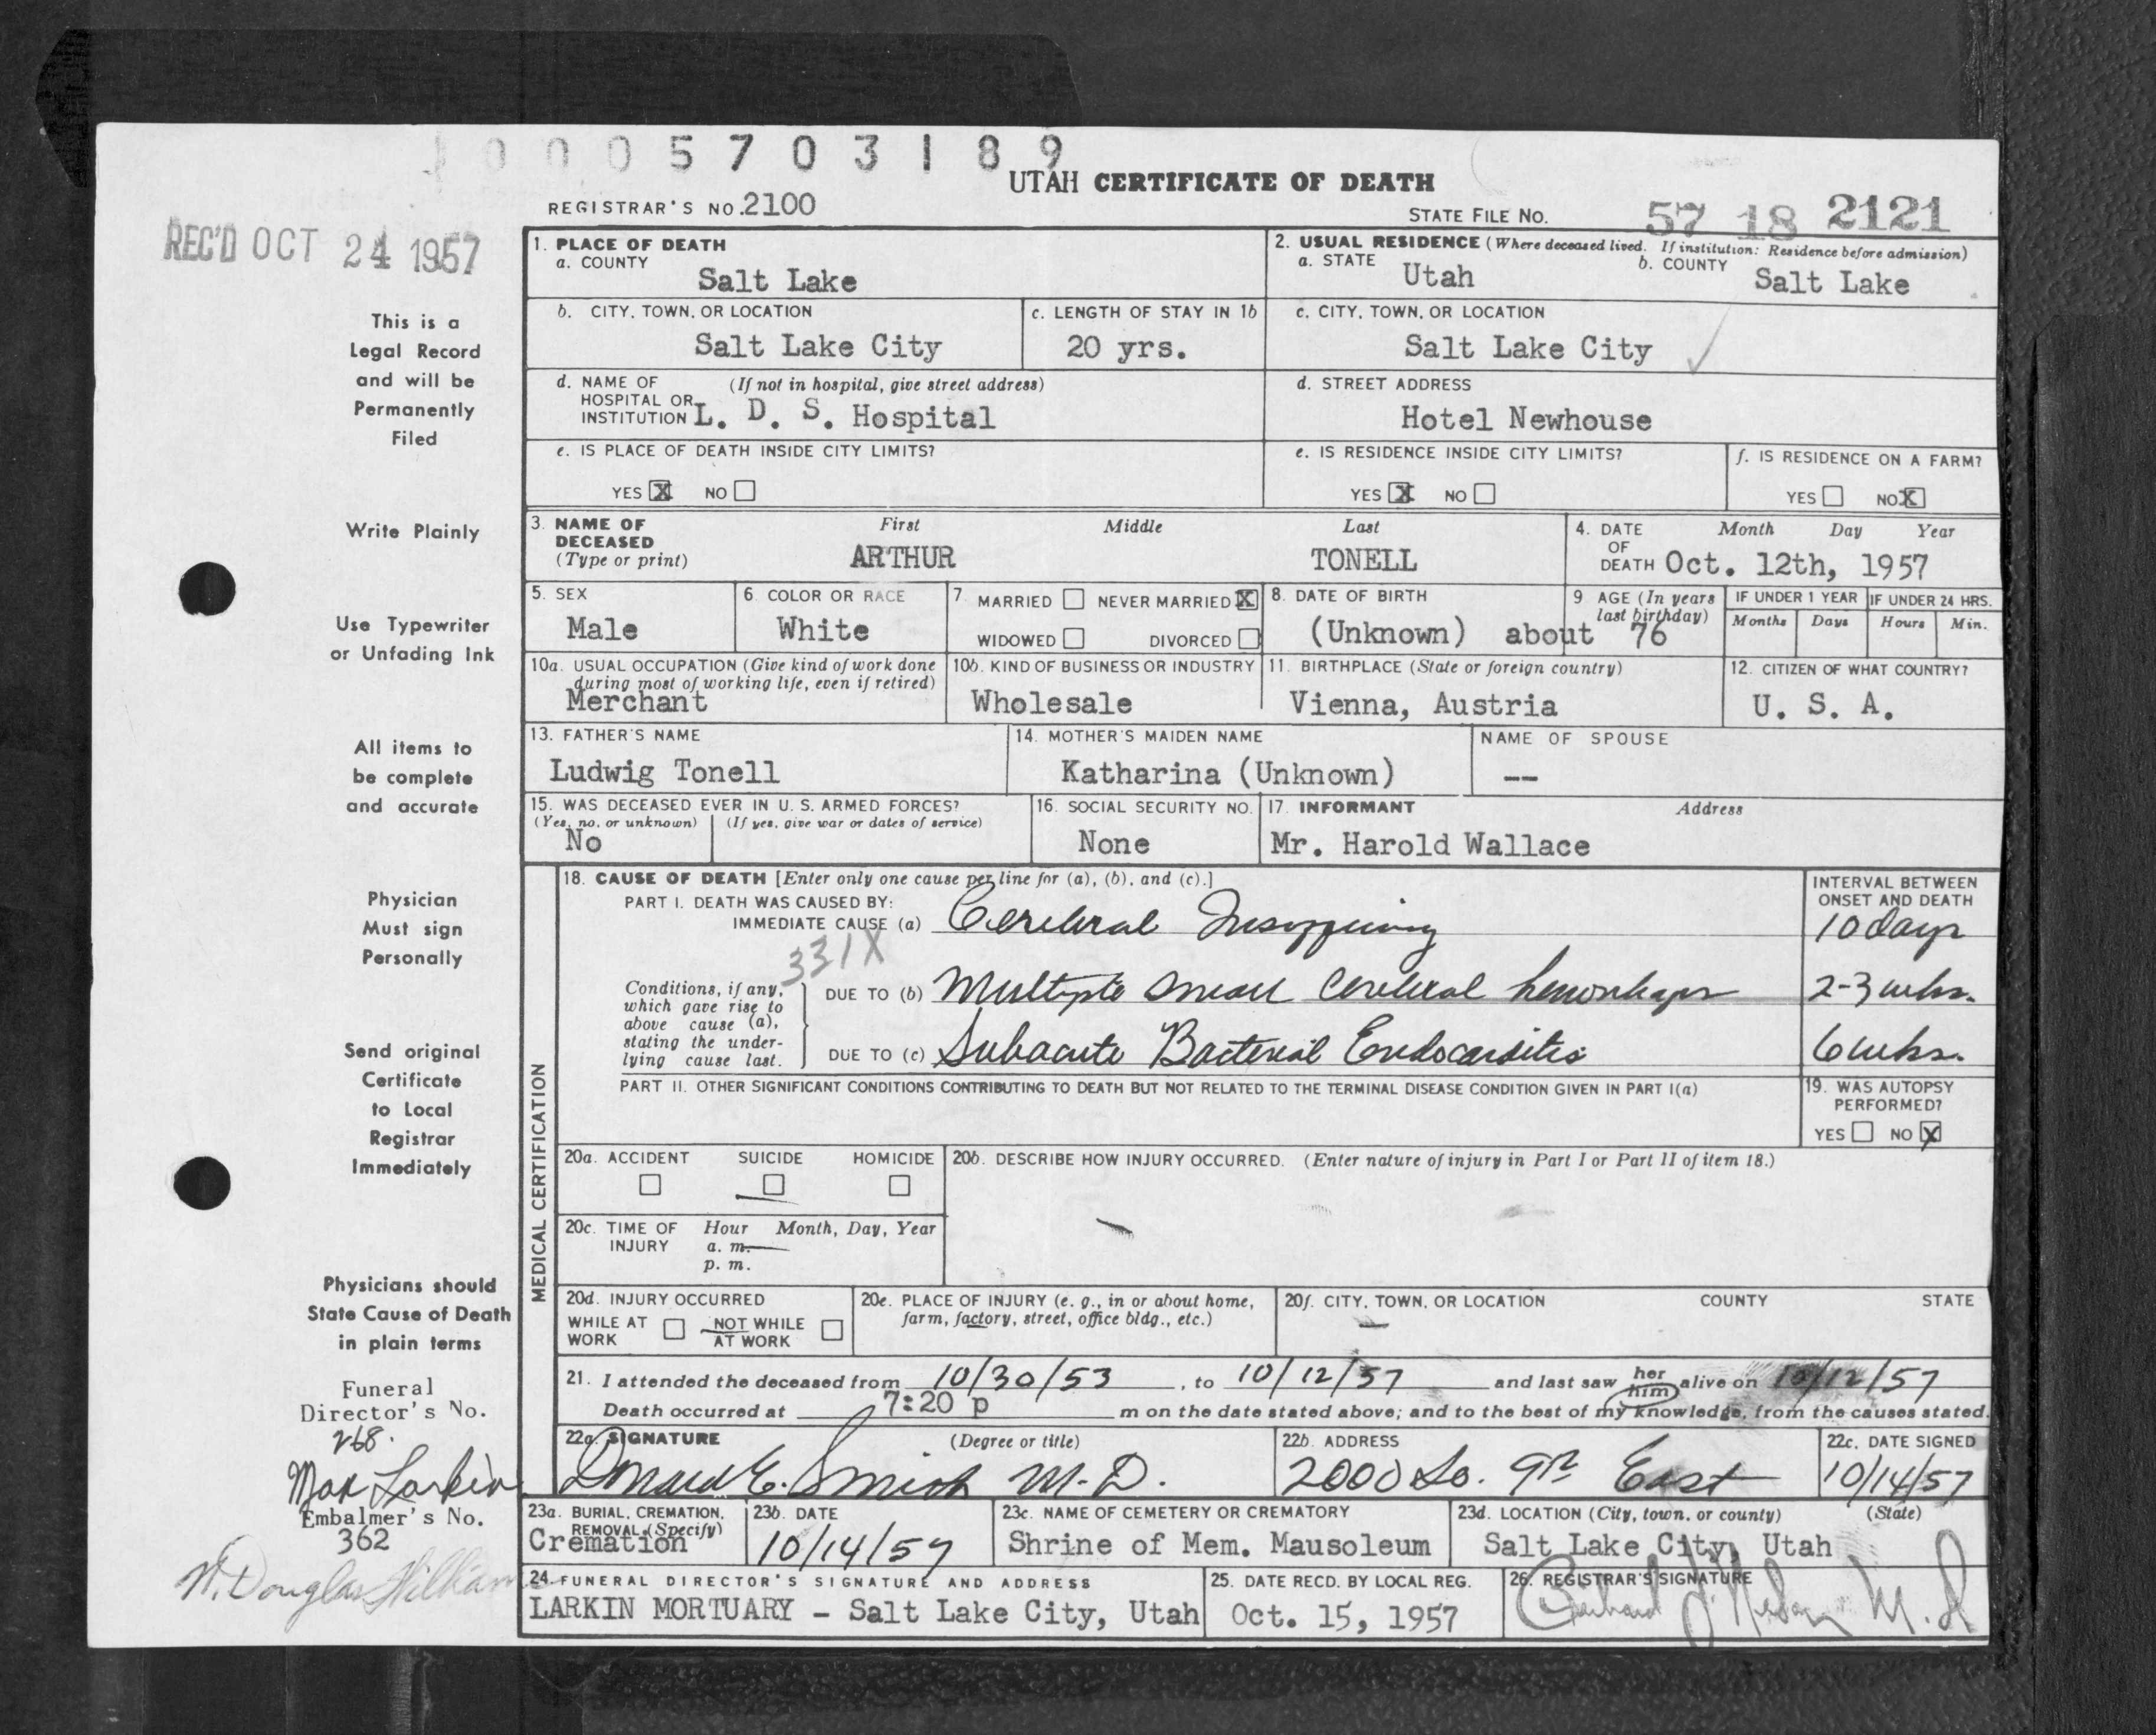 0005703189
UTAH CERTIFICATE OF DEATH
REGISTRAR'S NO. 2100
STATE FILE NO. 57 18 2121
REC'D OCT 24 1957
This is a
Legal Record
and will be
Permanently
Filed
Write Plainly
Use Typewriter
or Unfading Ink
All items to
be complete
and accurate
Physician
Must sign
Personally
Send original
Certificate
to Local
Registrar
Immediately
Physicians should
State Cause of Death
in plain terms
Funeral
Director's No.
268.
Max Larkin
Embalmer's No.
362
W. Douglas
1. PLACE OF DEATH
a. COUNTY
Salt Lake
2. USUAL RESIDENCE (Where deceased lived. If institution: Residence before admission)
a. STATE Utah b. COUNTY Salt Lake
b. CITY, TOWN, OR LOCATION
Salt Lake City
c. LENGTH OF STAY IN 1b
20 yrs.
c. CITY, TOWN, OR LOCATION
Salt Lake City
d. NAME OF (If not in hospital, give street address)
HOSPITAL OR
INSTITUTION L. D. S. Hospital
d. STREET ADDRESS
Hotel Newhouse
e. IS PLACE OF DEATH INSIDE CITY LIMITS?
YES X NO
e. IS RESIDENCE INSIDE CITY LIMITS?
YES X NO
f. IS RESIDENCE ON A FARM?
YES NO X
3. NAME OF First Middle Last
DECEASED
(Type or print) ARTHUR TONELL
4. DATE Month Day Year
OF
DEATH Oct. 12th, 1957
5. SEX
Male
6 COLOR OR RACE
White
7. MARRIED NEVER MARRIED X
WIDOWED DIVORCED
8. DATE OF BIRTH
(Unknown)
9 AGE (In years
last birthday)
about 76
IF UNDER 1 YEAR IF UNDER 24 HRS.
Months Days Hours Min.
10a. USUAL OCCUPATION (Give kind of work done
during most of working life, even if retired)
Merchant
10b. KIND OF BUSINESS OR INDUSTRY
Wholesale
11. BIRTHPLACE (State or foreign country)
Vienna, Austria
12. CITIZEN OF WHAT COUNTRY?
U. S. A.
13. FATHER'S NAME
Ludwig Tonell
14. MOTHER'S MAIDEN NAME
Katharina (Unknown)
NAME OF SPOUSE
--
15. WAS DECEASED EVER IN U. S. ARMED FORCES?
(Yes, no, or unknown) (If yes, give war or dates of service)
No
16. SOCIAL SECURITY NO.
None
17. INFORMANT Address
Mr. Harold Wallace
MEDICAL CERTIFICATION
18. CAUSE OF DEATH [Enter only one cause per line for (a), (b), and (c).]
INTERVAL BETWEEN
ONSET AND DEATH
PART I. DEATH WAS CAUSED BY:
IMMEDIATE CAUSE (a) Cerebral 10 days
331X
Conditions, if any,
which gave rise to
above cause (a),
stating the under-
lying cause last.
DUE TO (b) Multiple small cerebral hemorrhages 2-3 wks.
DUE TO (c) Subacute Bacterial Endocarditis 6 wks.
PART II. OTHER SIGNIFICANT CONDITIONS CONTRIBUTING TO DEATH BUT NOT RELATED TO THE TERMINAL DISEASE CONDITION GIVEN IN PART I(a)
19. WAS AUTOPSY
PERFORMED?
YES NO X
20a. ACCIDENT SUICIDE HOMICIDE
20b. DESCRIBE HOW INJURY OCCURRED. (Enter nature of injury in Part I or Part II of item 18.)
20c. TIME OF Hour Month, Day, Year
INJURY a. m.
p. m.
20d. INJURY OCCURRED
WHILE AT NOT WHILE
WORK AT WORK
20e. PLACE OF INJURY (e. g., in or about home,
farm, factory, street, office bldg., etc.)
20f. CITY, TOWN, OR LOCATION COUNTY STATE
21. I attended the deceased from 10/30/53, to 10/12/57 and last saw her him alive on 10/12/57
Death occurred at 7:20 p m on the date stated above; and to the best of my knowledge, from the causes stated.
22a. SIGNATURE (Degree or title)
Donald E. Smith M.D.
22b. ADDRESS
2000 So. 9th East
22c. DATE SIGNED
10/14/57
23a. BURIAL, CREMATION,
REMOVAL (Specify)
Cremation
23b. DATE
10/14/57
23c. NAME OF CEMETERY OR CREMATORY
Shrine of Mem. Mausoleum
23d. LOCATION (City, town, or county) (State)
Salt Lake City, Utah
24. FUNERAL DIRECTOR'S SIGNATURE AND ADDRESS
LARKIN MORTUARY - Salt Lake City, Utah
25. DATE RECD. BY LOCAL REG.
Oct. 15, 1957
26. REGISTRAR'S SIGNATURE
M. D